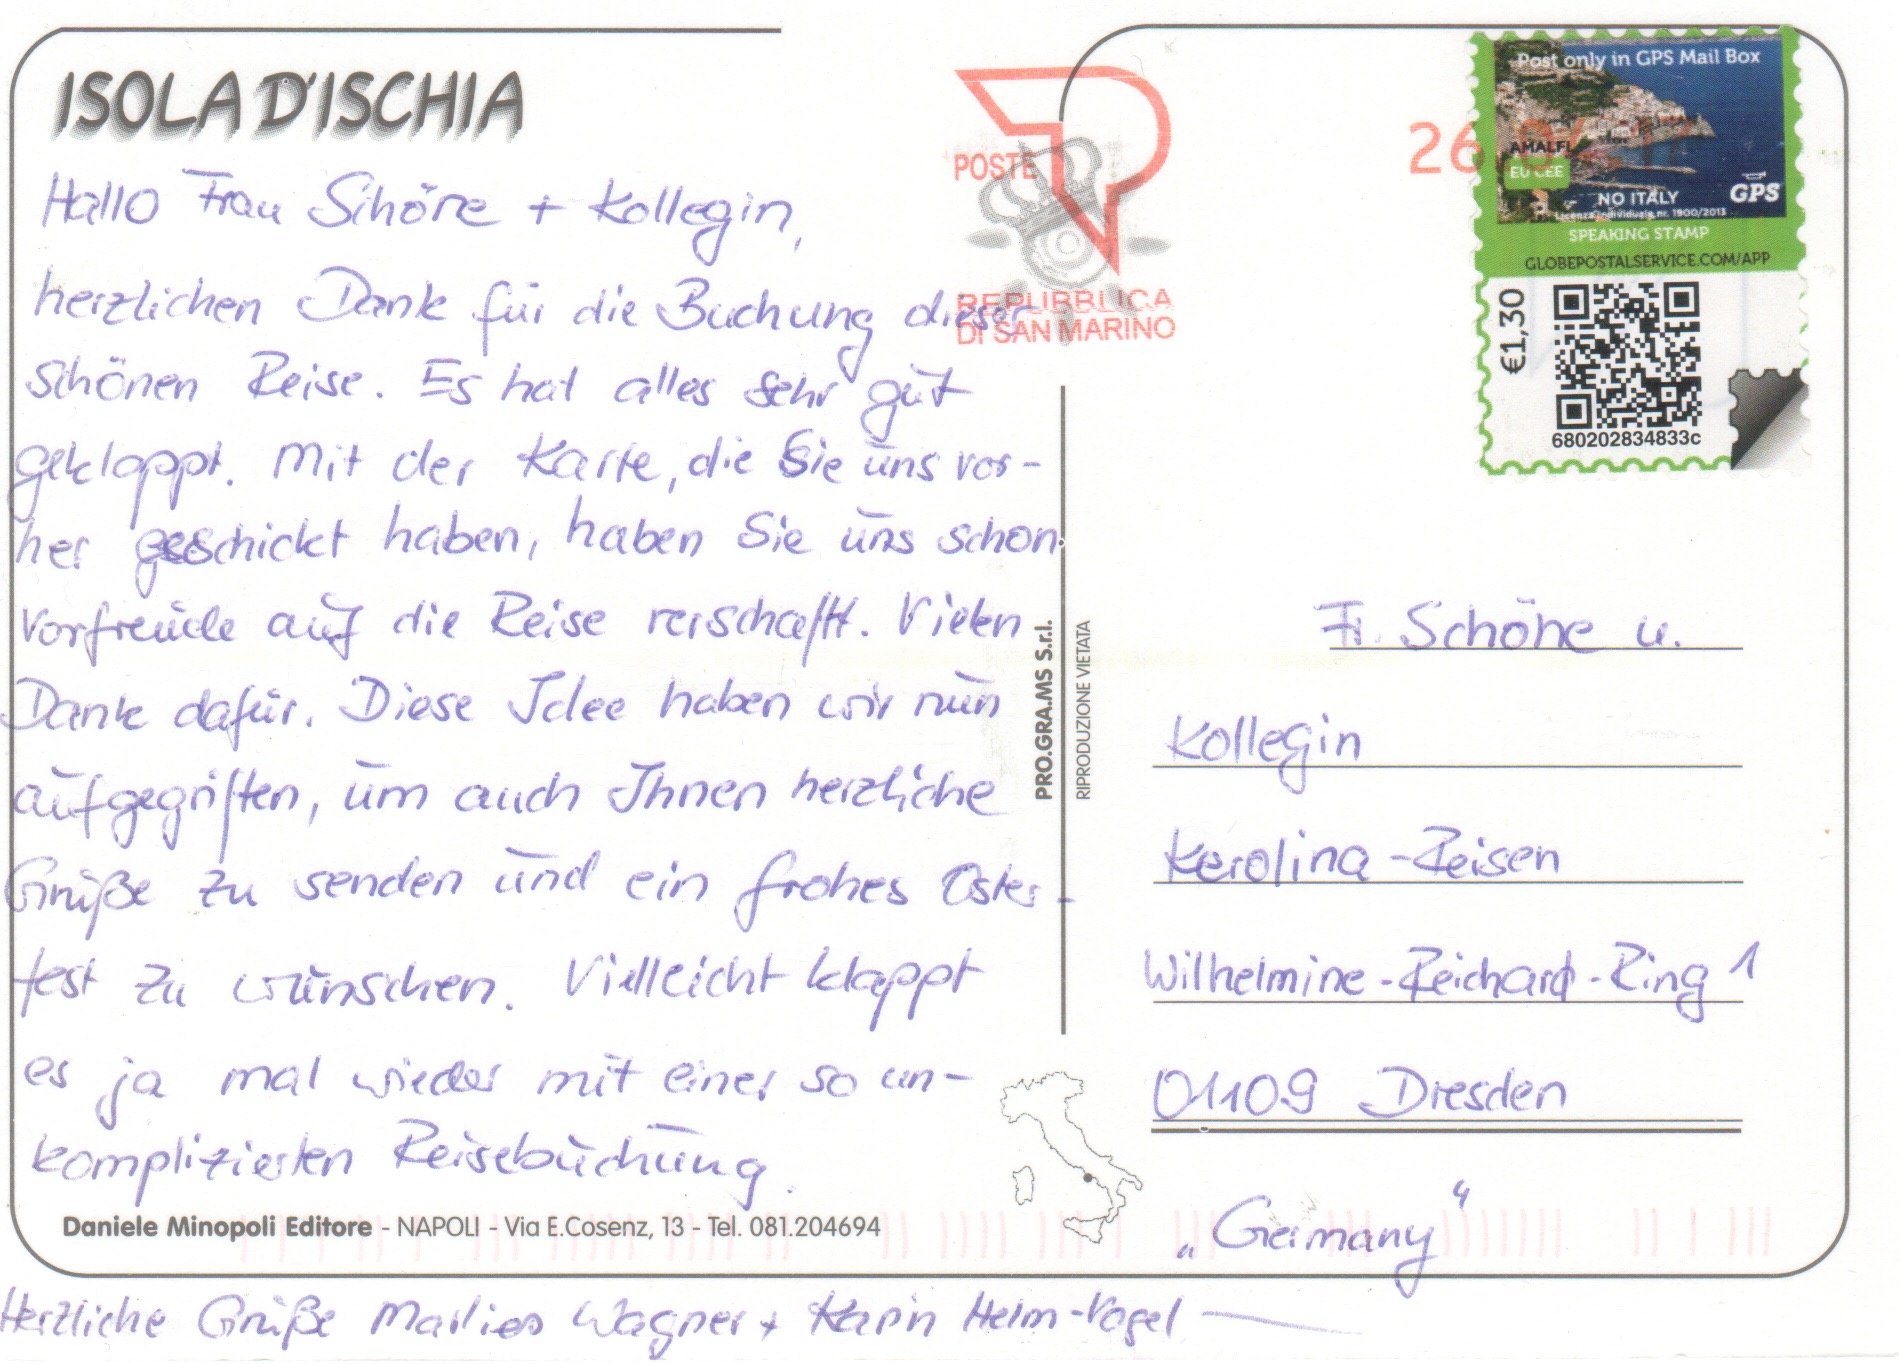 ISOLA D'ISCHIA
Hallo Frau Schöne + Kollegin,
herzlichen Dank für die Buchung dieser
schönen Reise. Es hat alles sehr gut
geklappt. Mit der Karte, die Sie uns vor-
her geschickt haben, haben Sie uns schon
Vorfreude auf die Reise verschafft. Vielen
Dank dafür. Diese Idee haben wir nun
aufgegriffen, um auch Ihnen herzliche
Grüße zu senden und ein frohes Oster-
fest zu wünschen. Vielleicht klappt
es ja mal wieder mit einer so un-
komplizierten Reisebuchung.
Daniele Minopoli Editore - NAPOLI - Via E.Cosenz, 13 - Tel. 081.204694
Herzliche Grüße Marlies Wagner + Karin Helm-Vogel
POSTE
REPUBBLICA
DI SAN MARINO
26
Post only in GPS Mail Box
AMALFI
EU CEE
NO ITALY
GPS
Licenza individuale nr. 1900/2013
SPEAKING STAMP
GLOBEPOSTALSERVICE.COM/APP
€1,30
680202834833c
PRO.GRA.MS S.r.l.
RIPRODUZIONE VIETATA
Fr. Schöne u.
Kollegin
Kerolina-Reisen
Wilhelmine-Reichard-Ring 1
01109 Dresden
„Germany“